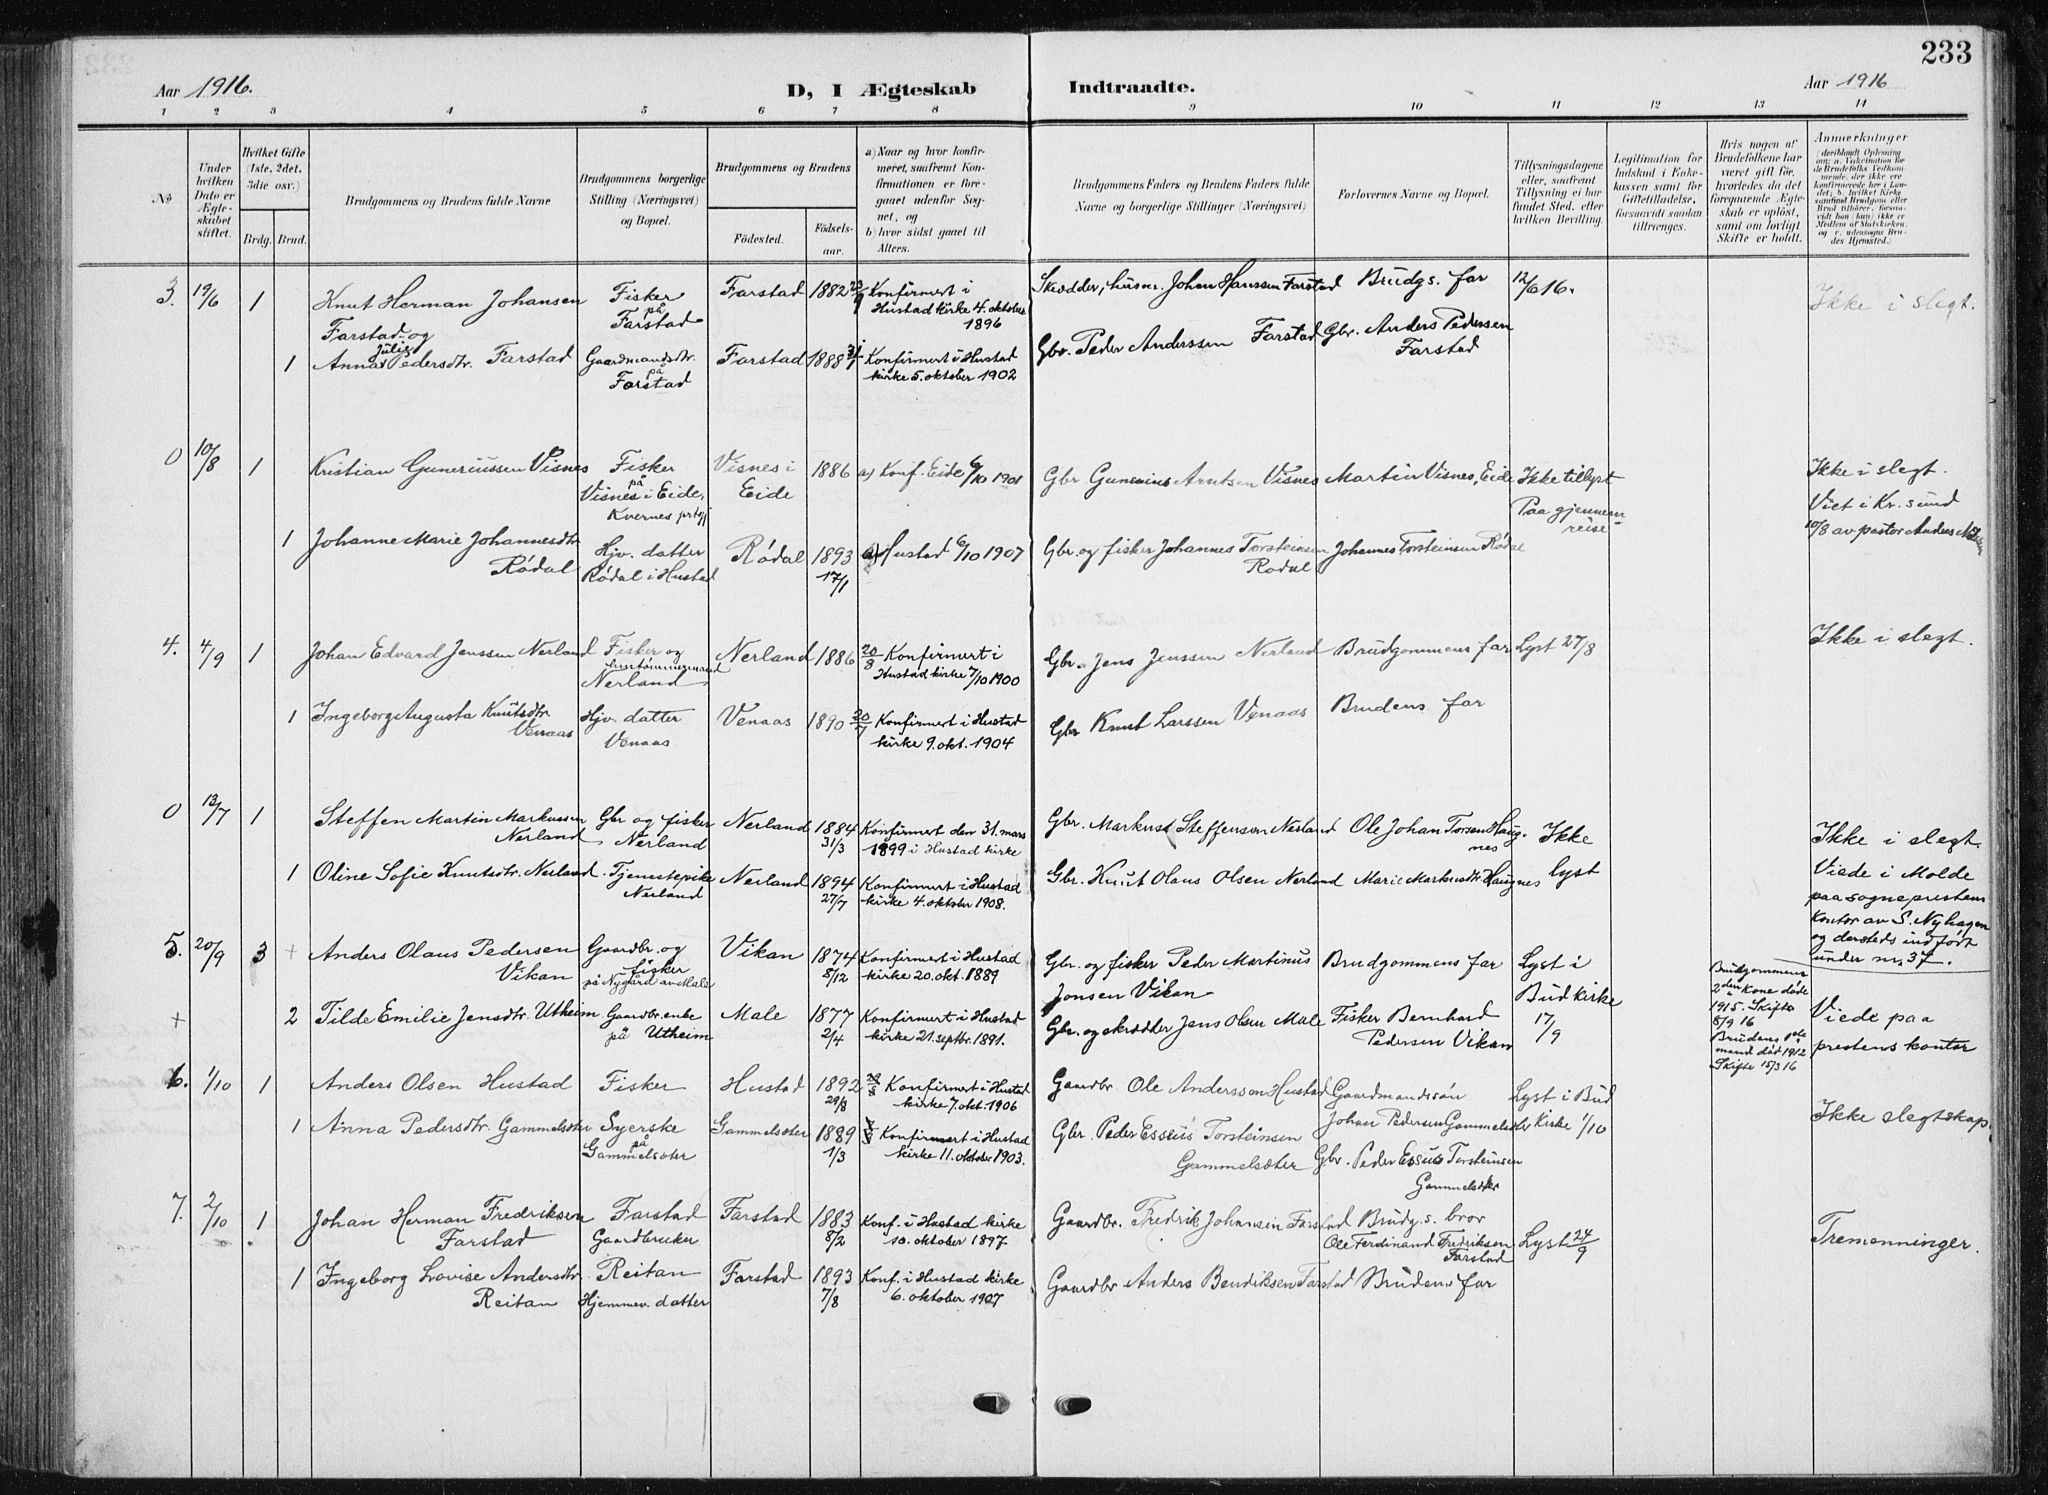 233
Aar 1916.
D, I Ægteskab
Indtraadte.
Aar 1916
1 2 3 4 5 6 7 8 9 10 11 12 13 14
№
Under hvilken Dato er Ægteskabet stiftet.
Hvilket Gifte (1ste, 2det, 3die osv.)
Brdg. Brud.
Brudgommens og Brudens fulde Navne
Brudgommens borgerlige Stilling (Næringsvei) og Bopæl.
Brudgommens og Brudens
Fødested.
Fødselsaar.
a) Naar og hvor konfirmeret, saafremt Konfirmationen er foregaaet udenfor Sognet, og
b) hvor sidst gaaet til Alters.
Brudgommens Faders og Brudens Faders fulde Navne og borgerlige Stillinger (Næringsvei)
Forlovernes Navne og Bopæl.
Tillysningsdagene eller, saafremt Tillysning ei har fundet Sted, efter hvilken Bevilling.
Legitimation for Indskud i Enkekassen samt for Giftetilladelse, forsaavidt saadan tiltrænges.
Hvis nogen af Brudefolkene har været gift før, hvorledes da det foregaaende Ægteskab er opløst, samt om lovligt Skifte er holdt.
Anmerkninger
(deriblandt Oplysning om: a. Vakcination for de Brudefolks Vedkommende, der ikke ere konfirmerede her i Landet; b. hvilket Kirkesamfund Brudgom eller Brud tilhører, forsaavidt han (hun) ikke er Medlem af Statskirken, og c. udensogns Brudes Hjemsted.)
3. 19/6 1 Knut Herman Johansen
Farstad og
Fisker
på
Farstad
Farstad 1882 Konfirmert i
Hustad kirke 4. oktober
1896
Skrædder, husm. Johan Hanssen Farstad
Brudgs. far
12/6 16.
Ikke i slegt.
1 Anna Julie Pedersdtr. Farstad
Gaardmandsdtr.
på
Farstad
Farstad 1888 Konfirmert i Hustad
kirke 5. oktober 1902
Gbr. Peder Anderssen Farstad
Gbr. Anders Pedersen
Farstad
0 10/8 1 Kristian Guneriussen Visnes
Fisker
på
Visnes i Eide,
Kvernes prtgj
Visnes i
Eide
1886 a) Konf. Eide 6/10 1901
Gbr Gunerius Arntsen Visnes
Martin Visnes, Eide
Ikke tillyst
Paa gjennem
reise
Ikke i slegt.
Viet i Kr.sund
10/8 av pastor Anders
1 Johanne Marie Johannesdtr
Rødal
Hjv. datter
Rødal i Hustad
Rødal 1893
17/1
a) Hustad 6/10 1907
Gbr. og fisker Johannes Torsteinsen
Rødal
Johannes Torsteinsen Rødal
4. 4/9 1 Johan Edvard Jenssen Nerland
Fisker og
hustømmermand
Nerland
Nerland 1886 20/8 Konfirmert i
Hustad kirke 7/10 1900
Gbr. Jens Jenssen Nerland
Brudgommens far
Lyst 27/8
Ikke i slegt.
1 Ingeborg Augusta Knutsdtr.
Venaas
Hjv. datter
Venaas
Venaas 1890 20/7 Konfirmert i Hustad
kirke 9. okt. 1904
Gbr Knut Larssen Venaas
Brudens far
0 13/7 1 Steffen Martin Markussen
Nerland
Gbr og fisker
Nerland
Nerland 1884
31/3
Konfirmert den 31. mars
1899 i Hustad kirke
Gbr. Markus Steffensen Nerland
Ole Johan Torsen Haug
nes
Ikke
lyst
Ikke i slegt.
Viede i Molde
paa sogneprestens
kontor av S. Nyhagen
og dersteds indført
under nr. 37.
1 Oline Sofie Knutsdtr. Nerland.
Tjenestepike
Nerland
Nerland 1894
27/7
Konfirmert i Hustad
kirke 4. oktober 1908.
Gbr. Knut Olaus Olsen Nerland
Marie Markusdtr. Haugnes
5. 20/9 3 + Anders Olaus Pedersen
Vikan
Gaardbr. og
fisker
på Nygård av Male
Vikan 1874
8/12
Konfirmert i Hustad
kirke 20. okt. 1889
Gbr. og fisker Peder Martinus
Jonsen Vikan
Brudgommens far
Lyst i
Bud kirke
17/9
Brudgommens
2den kone døde
1915. Skifte
8/9 16
Brudens
mand død 1912
Skifte 15/3 16
Viede paa
prestens kontor
+ 2 Tilde Emilie Jensdtr. Utheim
Gaardbr. enke
på Utheim
Male 1877
2/4
Konfirmert i Hustad
kirke 21. septbr. 1891.
Gbr. og skrædder Jens Olsen Male
Fisker Bernhard
Pedersen Vikan
6. 1/10 1 Anders Olsen Hustad
Fisker
Hustad 1892
29/8
Konfirmert i Hustad
kirke 7. okt. 1906
Gaardbr. Ole Anderssen Hustad
Gaardmandssøn
Johan Pedersen Gammelsæter
Lyst i Bud
Kirke 1/10
Ikke slegtskap.
1 Anna Pedersdtr. Gammelsæter
Syerske
på
Gammelsæter
Gammelsæter 1889
1/3
Konfirmert i Hustad
kirke 11. oktober 1903.
Gbr. Peder Esseus Torsteinsen
Gammelsæter
Gbr. Peder Esseus Torsteinsen
Gammelsæter
7. 2/10 1 Johan Herman Fredriksen
Farstad
Farstad
Gaardbruker
Farstad 1883
8/2
Konf. i Hustad kirke
10. oktober 1897.
Gaardbr. Fredrik Johansen Farstad
Brudg.s. bror
Ole Ferdinand Fredriksen
Farstad
Lyst 24/9
Tremenninger.
1 Ingeborg Lovise Andersdtr.
Reitan
Reitan
Hjemmev. datter
Farstad 1893
7/8
Konf. i Hustad kirke
6. oktober 1907
Gaardbr Anders Bendriksen Farstad
Brudens far